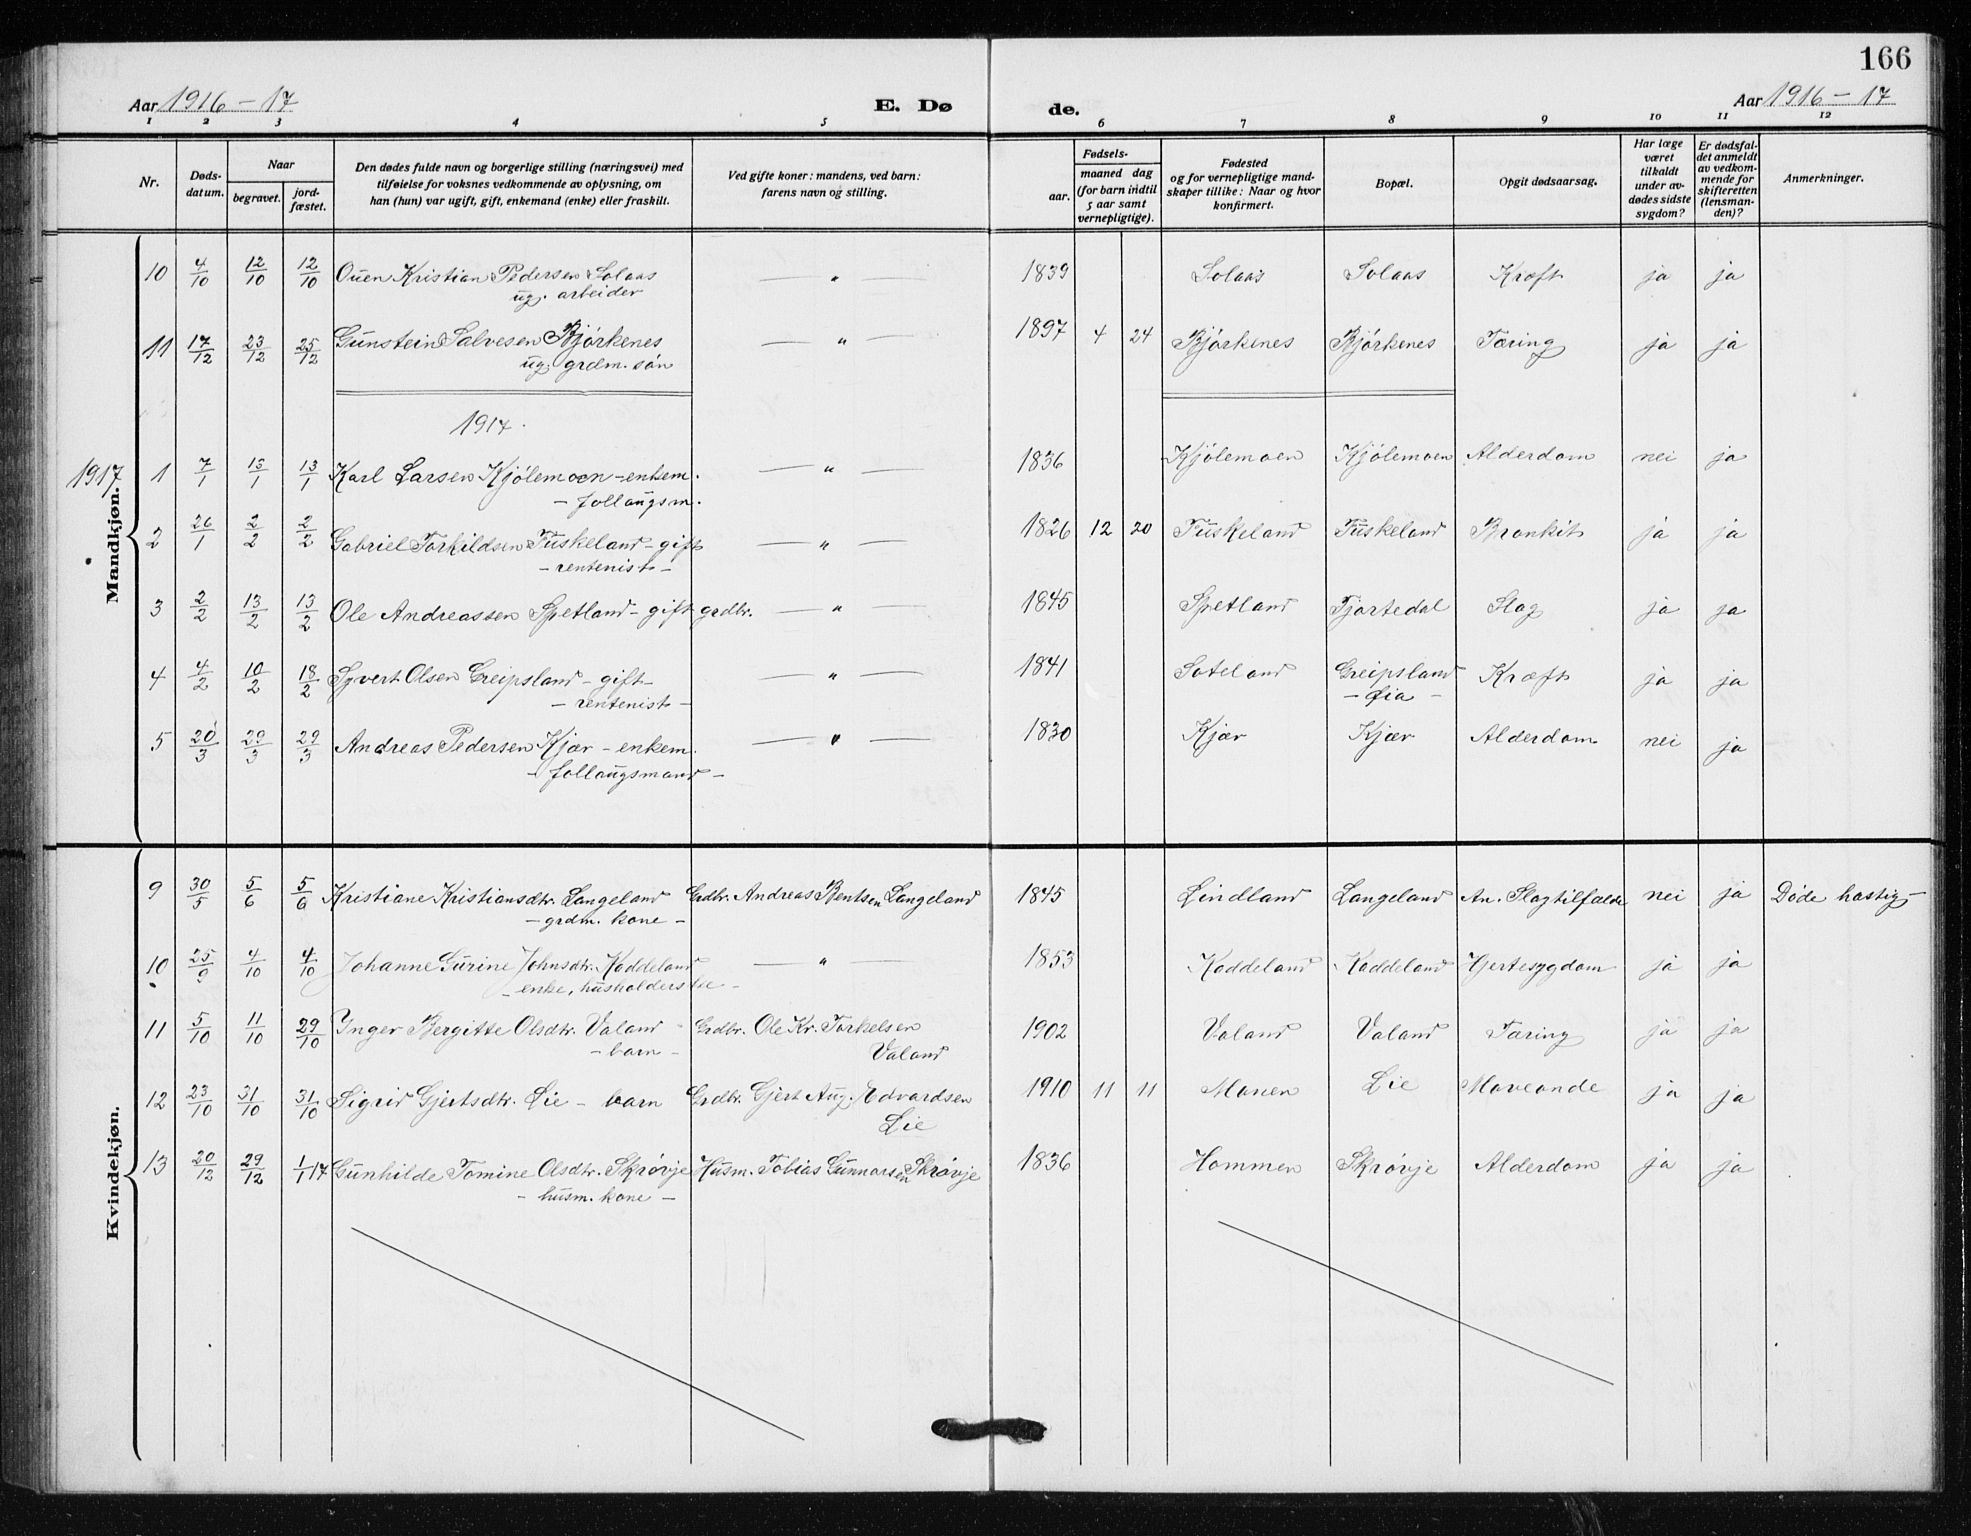 166
Aar 1916 – 17 E. Dø de. Aar 1916 – 17
1 2 3 4 5 6 7 8 9 10 11 12
Nr. Døds-datum. Naar begravet. jord-fæstet. Den dødes fulde navn og borgerlige stilling (næringsvei) med tilføielse for voksnes vedkommende av oplysning, om han (hun) var ugift, gift, enkemand (enke) eller fraskilt. Ved gifte koner: mandens, ved barn: farens navn og stilling. Fødsels- aar. maaned dag (for barn indtil 5 aar samt vernepligtige). Fødested og for vernepligtige mand-skaper tillike: Naar og hvor konfirmert. Bopæl. Opgit dødsaarsag. Har læge været tilkaldt under av-dødes sidste sygdom? Er dødsfal-det anmeldt av vedkom-mende for skifteretten (lensman-den)? Anmerkninger.
Mandkjøn.
10 4/10 12/10 12/10 Ouen Kristian Pedersen Solaas — " — 1839 Solaas Solaas Kræft ja ja
ug. arbeider
11 17/12 23/12 25/12 Gunstein Salvesen Bjørkenes — " — 1897 4 24 Bjørkenes Bjørkenes Tæring ja ja
ug. grdm. søn
1917.
1917 1 7/1 13/1 13/1 Karl Larsen Kjølemoen – enkem. — " — 1836 Kjølemoen Kjølemoen Alderdom nei ja
– follaugsm.
2 26/1 2/2 2/2 Gabriel Torkildsen Fuskeland – gift — " — 1826 12 20 Fuskeland Fuskeland Bronkit ja ja
– rentenist –
3 2/2 13/2 13/2 Ole Andreassen Spetland – gift grdbr. — " — 1845 Spetland Tjortedal Slag ja ja
4 4/2 10/2 18/2 Syvert Olsen Greipsland – gift – — " — 1841 Soteland Greipsland Kræft ja ja
– rentenist – – Øia –
5 20/3 29/3 29/3 Andreas Pedersen Kjær – enkem. — " — 1830 Kjær Kjær Alderdom nei ja
– follaugsmand –
Kvindekjøn.
9 30/5 5/6 5/6 Kristiane Kristiansdtr. Langeland Grdbr. Andreas Bentsen Langeland 1845 Lindland Langeland An. Slagtilfælde nei ja Døde hastig –
– grdm. kone –
10 25/9 4/10 4/10 Johanne Gurine Johnsdtr. Koddeland — " — 1853 Koddeland Koddeland Hjertesygdom ja ja
– enke, husholderske –
11 5/10 11/10 29/10 Inger Bergitte Olsdtr. Valand Grdbr. Ole Kr. Torkelsen 1902 Valand Valand Tæring ja ja
– barn – Valand
12 23/10 31/10 31/10 Sigrid Gjertsdtr. Lie – barn Grdbr. Gjert Aug. Edvardsen 1910 11 11 Monen Lie Maveonde ja ja
Lie
13 20/12 29/12 1/1 17 Gunhilde Tomine Olsdtr. Skrøvje Husm. Tobias Gunnarsen Skrøvje 1836 Hommen Skrøvje Alderdom ja ja
– husm. kone –